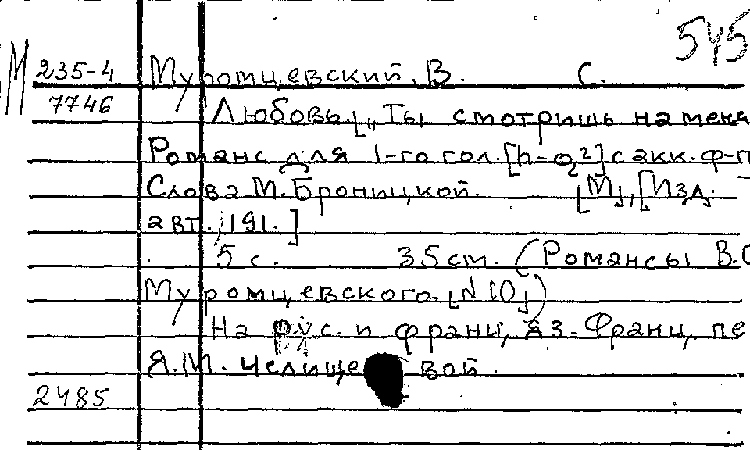 545
М 235-4 Муромцевский, В. С.
7746 Любовь. [„Ты смотришь на меня
Романс для 1-го гол. [h-g²] с акк. ф-п
Слова М. Броницкой. [М], [Изд.
авт., 191.]
5 с. 35 см. (Романсы В.С
Муромцевского. [№ 10])
На рус. и франц. яз. Франц. пе
Я.М. Челищевой.
2485